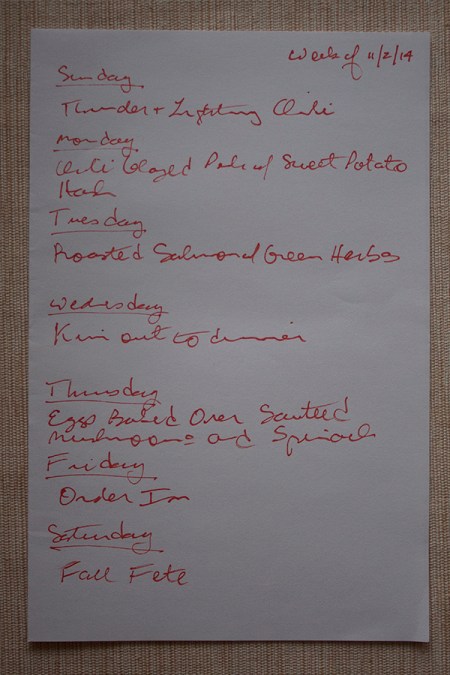 Week of 11/2/14
Sunday
Thunder + Lightning Chili
Monday
Chili Glazed Pork w/ Sweet Potato
Hash
Tuesday
Roasted Salmon w/ Green Herbs
Wednesday
Kim out to dinner
Thursday
Eggs Baked Over Sauteed
Mushrooms and Spinach
Friday
Order In
Saturday
Fall Fete